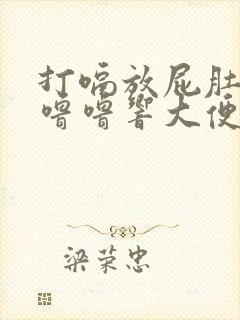 打嗝放屁肚
噜噜响大便
梁荣忠